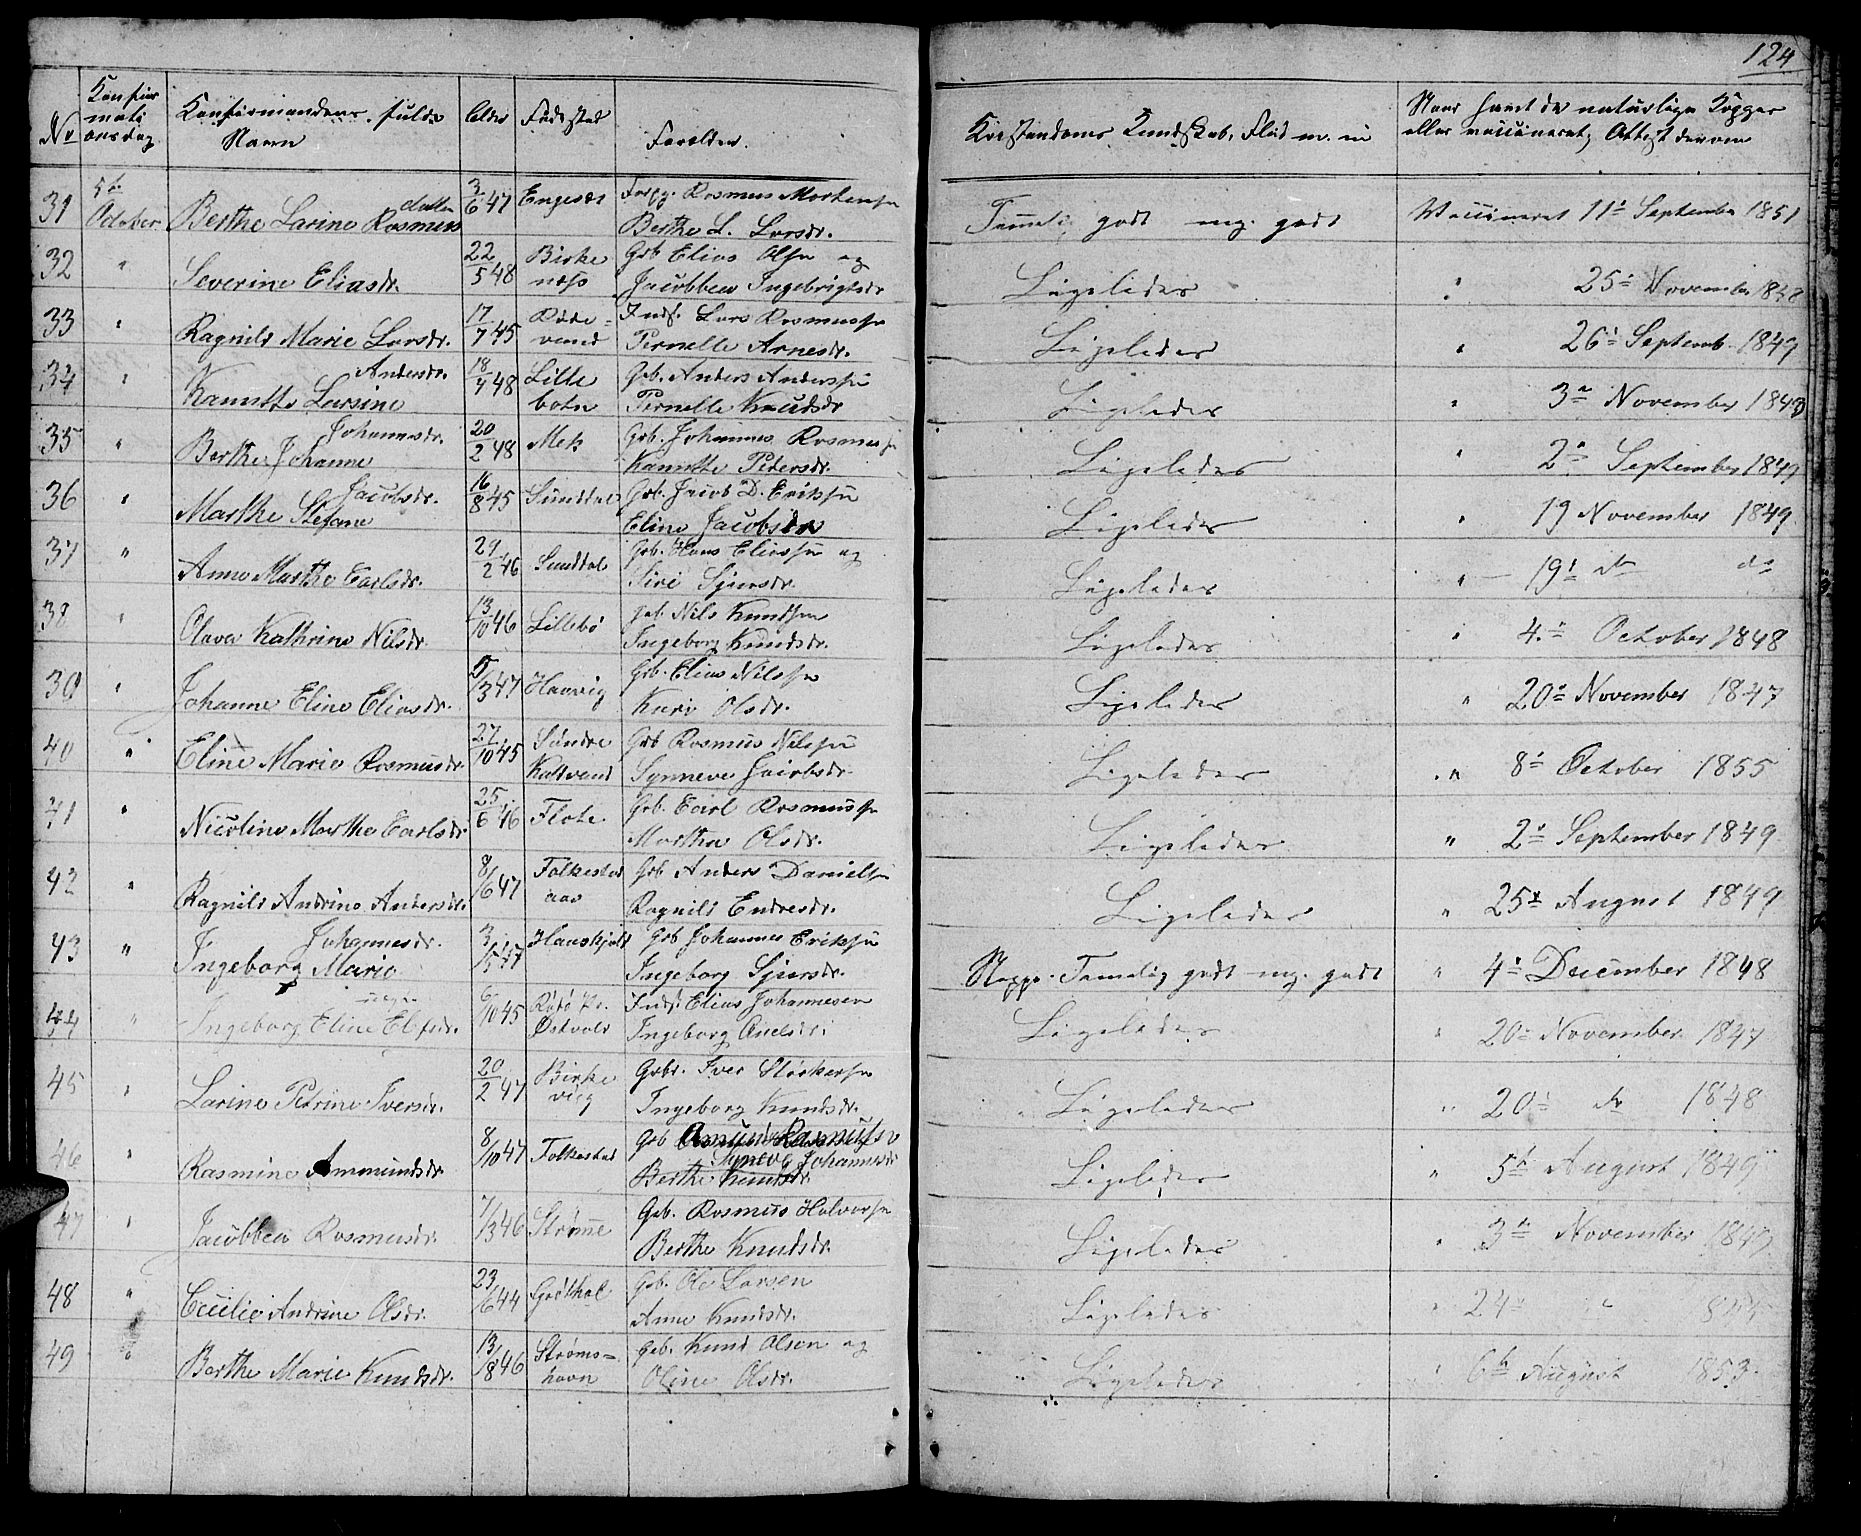 124
No Konfirmationsdag Konfirmandens fulde Navn Alder Fødested Forældre. Kristendoms Kundskab, Flid m. m. Naar havt de naturlige Kopper eller vaccineret, Attest derom
31 5te October Berthe Larine Rasmusdatter 3/6 47 Engesæt Rasmus Mortensen Berthe L. Larsdr. Temmelig godt mg. godt Vaccineret 11te September 1851
32 " Severine Eliasdr. 22/5 48 Birkenæss Gbr Elias Olsen og Jacobbea Ingebrigtsdr Ligeledes " 25de November 1848
33 " Ragnild Marie Larsdr. 17/7 45 Inds. Lars Rasmussen Pernelle Arnesdr. Ligeledes " 26de Septemb. 1849
34 " Larsine Andersdr. 18/7 48 Lillebotn Gbr. Anders Anderssen Pernelle Knudsdr Ligeledes " 3die November 1849
35 " Berthe Johanne Johannesdr. 20/2 48 Mek Gbr. Johannes Rasmussen Pedersdr. Ligeledes " 2den September 1849
36 " Marthe Stefane Jacobsdr. 16/8 45 Sunddal Gbr. Jacob D. Eriksen Eline Jacobsdr Ligeledes " 19 November 1849
37 " Anne Marthe Carlsdr. 29/2 46 Sunddal Gbr. Hans Eliassen og Siri Sjursdr. Ligeledes " 19de do do
38 " Olava Kathrine Nilsdr. 13/10 46 Lillebø Gbr. Nils Knudsen Ingeborg Knudsdr. Ligeledes " 4de October 1848
39 " Johanne Eline Eliasdr. 5/3 47 Havvig Gbr. Elias Nilssen Kari Olsdr. Ligeledes " 20de November 1847
40 " Eline Marie Rasmusdr. 27/10 45 Søndre Kaldvand Gbr Rasmus Nilssen Synneve Jacobsdr. Ligeledes " 8de October 1855
41 " Nicoline Marthe Carlsdr 25/6 46 Flote Gbr. Carl Rasmussen Martha Olsdr. Ligeledes " 2den September 1849
42 " Ragnild Andrine Andersdr. 8/6 47 Folkestadaas Gbr Anders Danielsen Ragnild Endresdr. Ligeledes " 25de August 1849
43 " Ingeborg Marie Johannesdr. 3/5 47 Havskjold Gbr Johannes Eriksen Ingeborg Sjursdr. Neppe Temelig godt mg. godt " 4de December 1848
44 " Ingeborg Eline 6/10 45 Østvold Inds. Elias Johannesen Ingeborg Ligeledes " 20de November 1847
45 " Larine Petrine Iversdr. 20/2 47 Birkevig Gbr. Iver Størkersen Ingeborg Knudsdr. Ligeledes " 20de do 1848
46 " Rasmine Ammundsdr 8/10 47 Folkestad Gbr Amund Rasmussen Synneve Johannesdr Berthe Knudsdr. Ligeledes " 5te August 1849
47 " Jacobbea Rasmusdr. 7/3 46 Strømme Gbr. Rasmus Halvorsen Berthe Knudsdr. Ligeledes " 3die November 1849
48 " Cecilie Andrine Olsdr. 23/6 44 Gjøthol Gbr. Ole Larsen Anne Knudsdr. Ligeledes " 24de "
49 " Berthe Marie Knudsdr. 13/8 46 Strømshavn Gbr. Knud Olsen og Oline Olsdr. Ligeledes " 6te August 1853